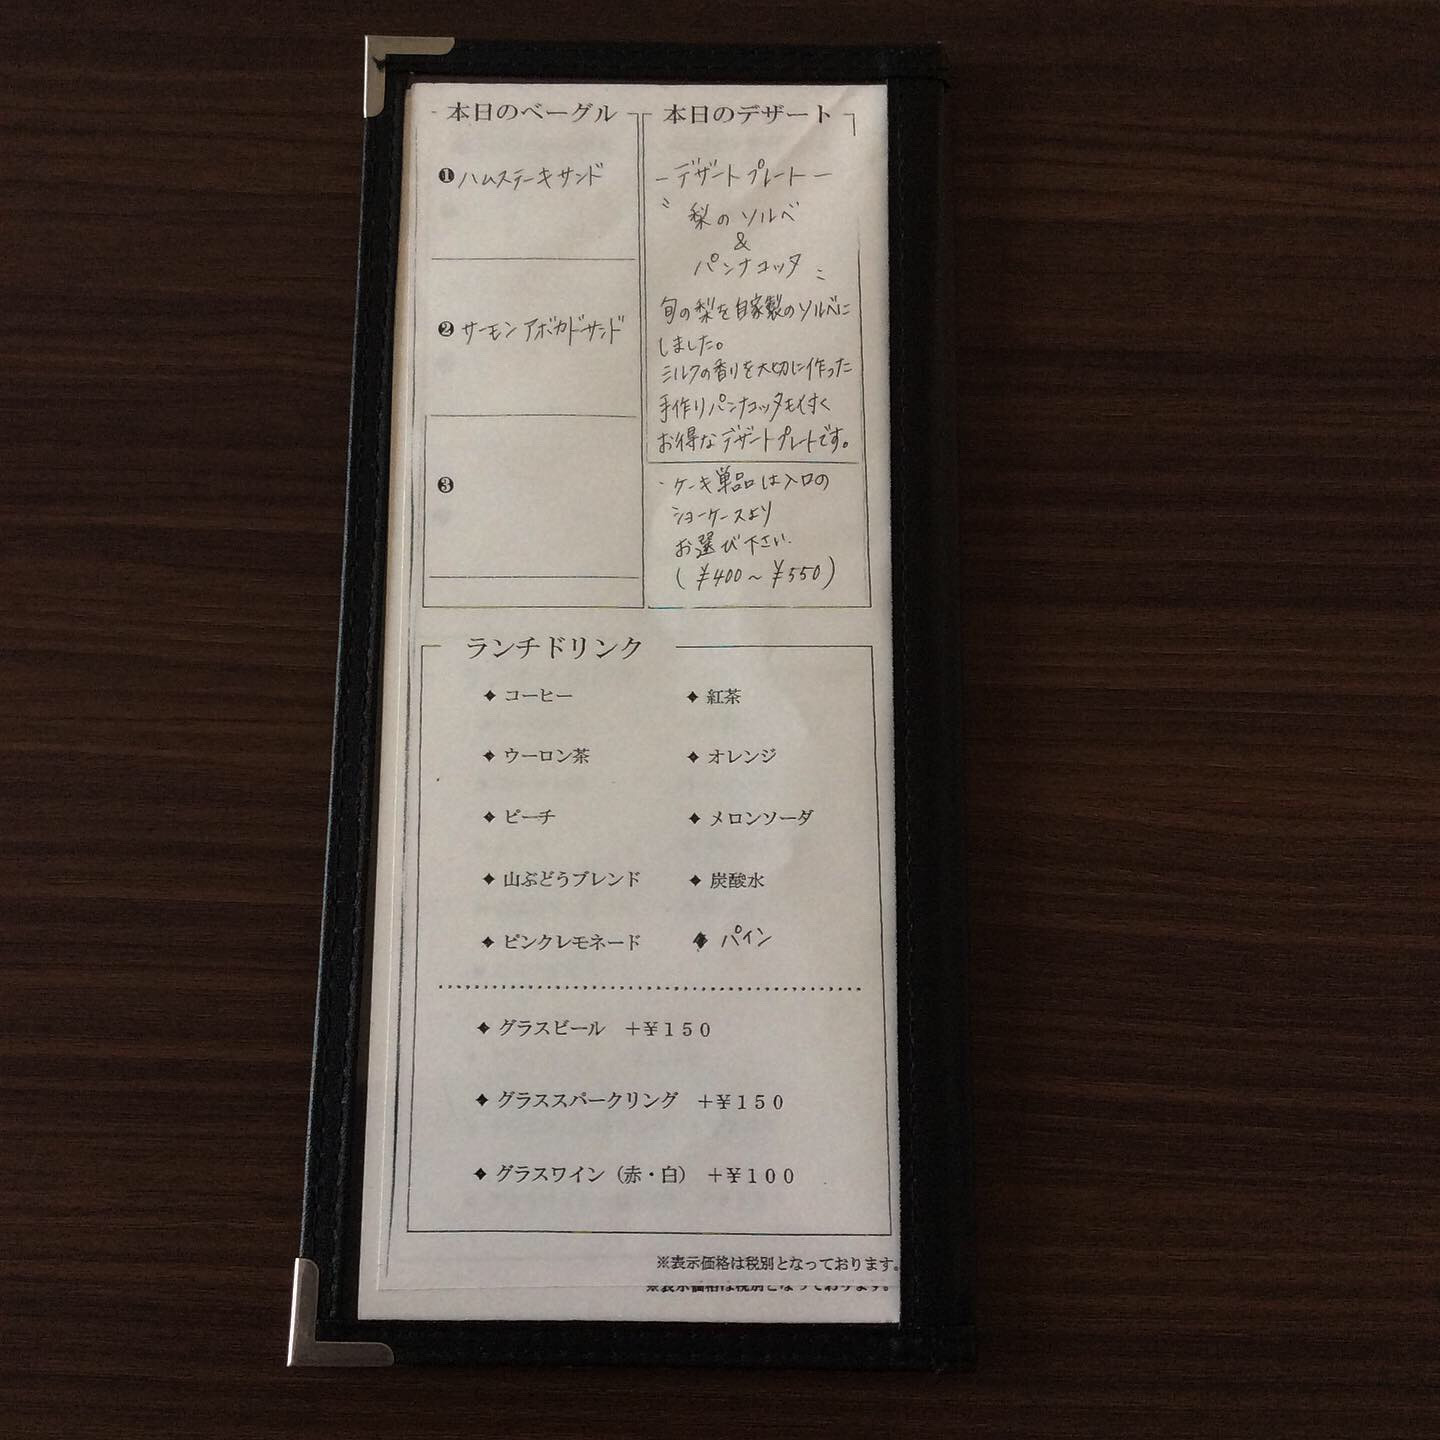 本日のベーグル
❶ハムステーキサンド
❷サーモンアボカドサンド
❸
本日のデザート
ーデザートプレートー
〝梨のソルベ
&
パンナコッタ〟
旬の梨を自家製のソルベに
しました。
ミルクの香りを大切に作った
手作りパンナコッタも付く
お得なデザートプレートです。
・ケーキ単品は入口の
ショーケースより
お選び下さい.
(¥400～¥550)
ランチドリンク
◆コーヒー ◆紅茶
◆ウーロン茶 ◆オレンジ
◆ピーチ ◆メロンソーダ
◆山ぶどうブレンド ◆炭酸水
◆ピンクレモネード ◆パイン
◆グラスビール ＋￥１５０
◆グラススパークリング ＋￥１５０
◆グラスワイン（赤・白） ＋￥１００
※表示価格は税別となっております。
※表示価格は税別となっております。